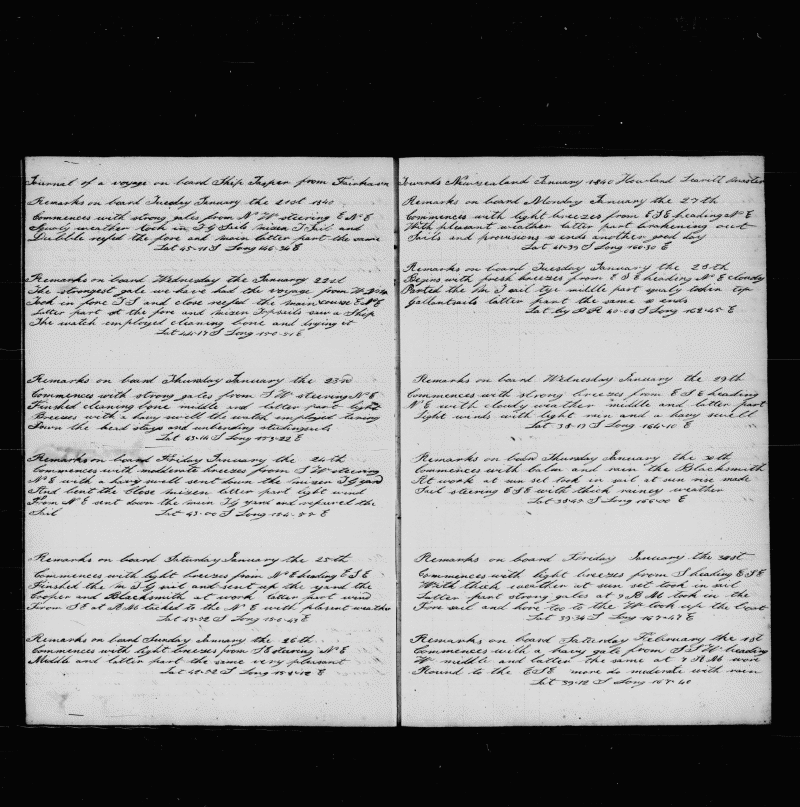 Journal of a voyage on board Ship Jasper from Fairhaven
Remarks on board Tuesday January the 21st 1840
Commences with strong gales from N W steering E N E
Squaly weather took in T G Sails mizen T Sail and
Dubble reefed the fore and main latter part the same
Lat 45-11 S Long 146-36 E
Remarks on board Wednesday the January 22nd
The strongest gale we have had the voyage from W
Took in fore T S and close reefed the main course E N E
Latter part set the fore and mizen Topsails saw a Ship
The watch employed cleaning bone and drying it
Lat 44-17 S Long 150-31 E
Remarks on board Thursday January the 23rd
Commences with strong gales from S W steering N E
Finshed cleaning bone middle and latter part light
Breezes with a havy swell the watch employed taring
Down the head stays and unbending studingsails
Lat 43-14 S Long 153-22 E
Remarks on board Friday January the 24th
Commences with modderate breezes from S W steering
N E with a havy swell sent down the mizen T G yard
And bent the close mizen latter part light wind
From N E sent down the main T G yard and repaired the
Sail Lat 43-00 S Long
Remarks on board Saturday January the 25th
Commences with light breezes from N E heading E S E
Finshed the m T G sail and sent up the yard the
Cooper and Blacksmith at work latter part wind
From S E at A M tacked to the N E with plesent weather
Lat 43-22 S Long
Remarks on board Sunday January the 26th
Commences with light breezes from S E steering N E
Middle and latter part the same very pleasant
Lat 42-52 S Long
Towards Newzealand January 1840 Howland Leavitt Master
Remarks on board Monday January the 27th
Commences with light breezes from E S E heading N E
With pleasant weather latter part brakening out
Sails and provisions so ends another good day
Lat 41-37 S Long 160-30 E
Remarks on board Tuesday January the 28th
Begins with fresh breezes from E S E heading N E cloudy
Parted the m T sail tye middle part squaly token top
Gallantsails latter part the same so ends
Lat by D R 40-03 S Long 162-45 E
Remarks on board Wednesday January the 29th
Commences with strong breezes from E S E heading
N E with cloudy weather middle and latter part
Light winds with light rain and a havy swell
Lat 38-17 S Long 164-10 E
Remarks on board Thursday January the 30th
Commences with calm and rain the Blacksmith
At work at sun set took in sail at sun rise made
Sail steering E S E with thick rainey weather
Lat 38-47 S Long 166-00 E
Remarks on board Friday January the 31st
Commences with light breezes from S heading E S E
With thick weather at sun set took in sail
Latter part strong gales at 9 A M took in the
Fore sail and hove too to the W took up the boat
Lat 39-34 S Long 167-47 E
Remarks on board Satturday February the 1st
Commences with a havy gale from S S W heading
W middle and latter the same at 7 A M wore
Round to the E S E more do moderate with rain
Lat 39-12 S Long 167-40